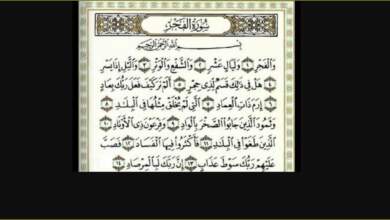 سُورَةُ الفَجْرِ
بِسْمِ اللَّهِ الرَّحْمَٰنِ الرَّحِيمِ
وَالْفَجْرِ ١ وَلَيَالٍ عَشْرٍ ٢ وَالشَّفْعِ وَالْوَتْرِ ٣ وَاللَّيْلِ إِذَا يَسْرِ
٤ هَلْ فِي ذَٰلِكَ قَسَمٌ لِّذِي حِجْرٍ ٥ أَلَمْ تَرَ كَيْفَ فَعَلَ رَبُّكَ بِعَادٍ
٦ إِرَمَ ذَاتِ الْعِمَادِ ٧ الَّتِي لَمْ يُخْلَقْ مِثْلُهَا فِي الْبِلَادِ ٨
وَثَمُودَ الَّذِينَ جَابُوا الصَّخْرَ بِالْوَادِ ٩ وَفِرْعَوْنَ ذِي الْأَوْتَادِ ١٠
الَّذِينَ طَغَوْا فِي الْبِلَادِ ١١ فَأَكْثَرُوا فِيهَا الْفَسَادَ ١٢ فَصَبَّ
عَلَيْهِمْ رَبُّكَ سَوْطَ عَذَابٍ ١٣ إِنَّ رَبَّكَ لَبِالْمِرْصَادِ ١٤